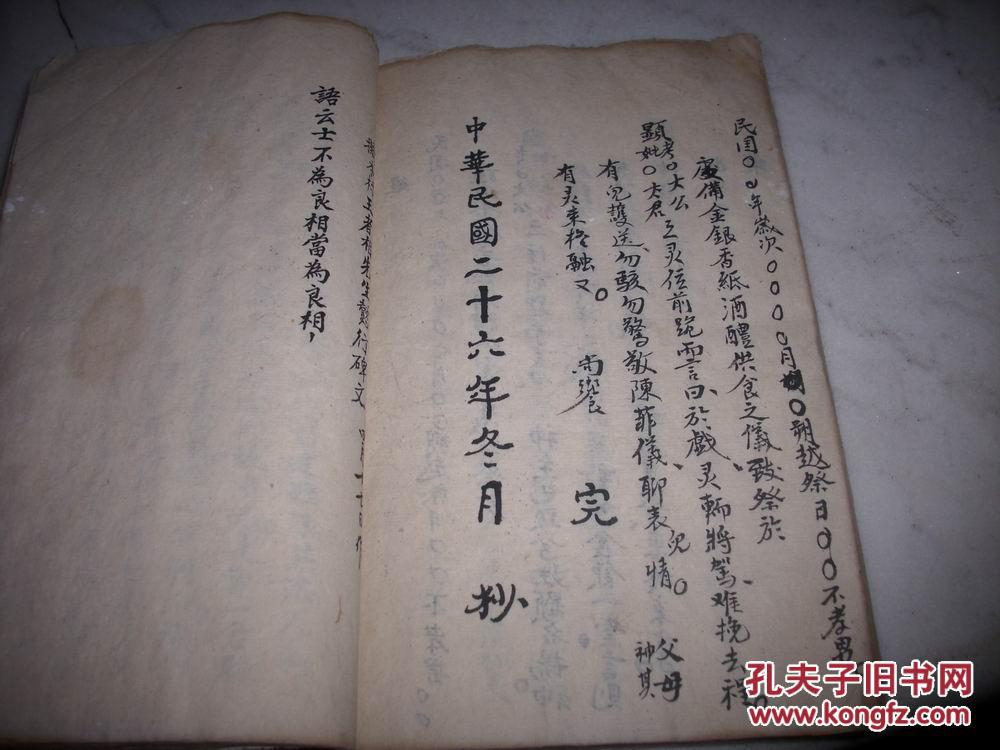 民国〇〇年歲次〇〇〇〇月〇朔越祭日〇〇不孝男
虔備金銀香紙酒醴供食之儀致祭於
顯考妣〇大公大君之灵位前跪而言曰於戲灵輀將駕难挽去程。
有兒護送勿駭勿驚敬陳菲儀聊表兒情。父母神其
有灵来格融又。尚饗
完
中華民國二十六年冬月 抄
行碑文
語云士不為良相當為良相，
孔夫子旧书网
www.kongfz.com